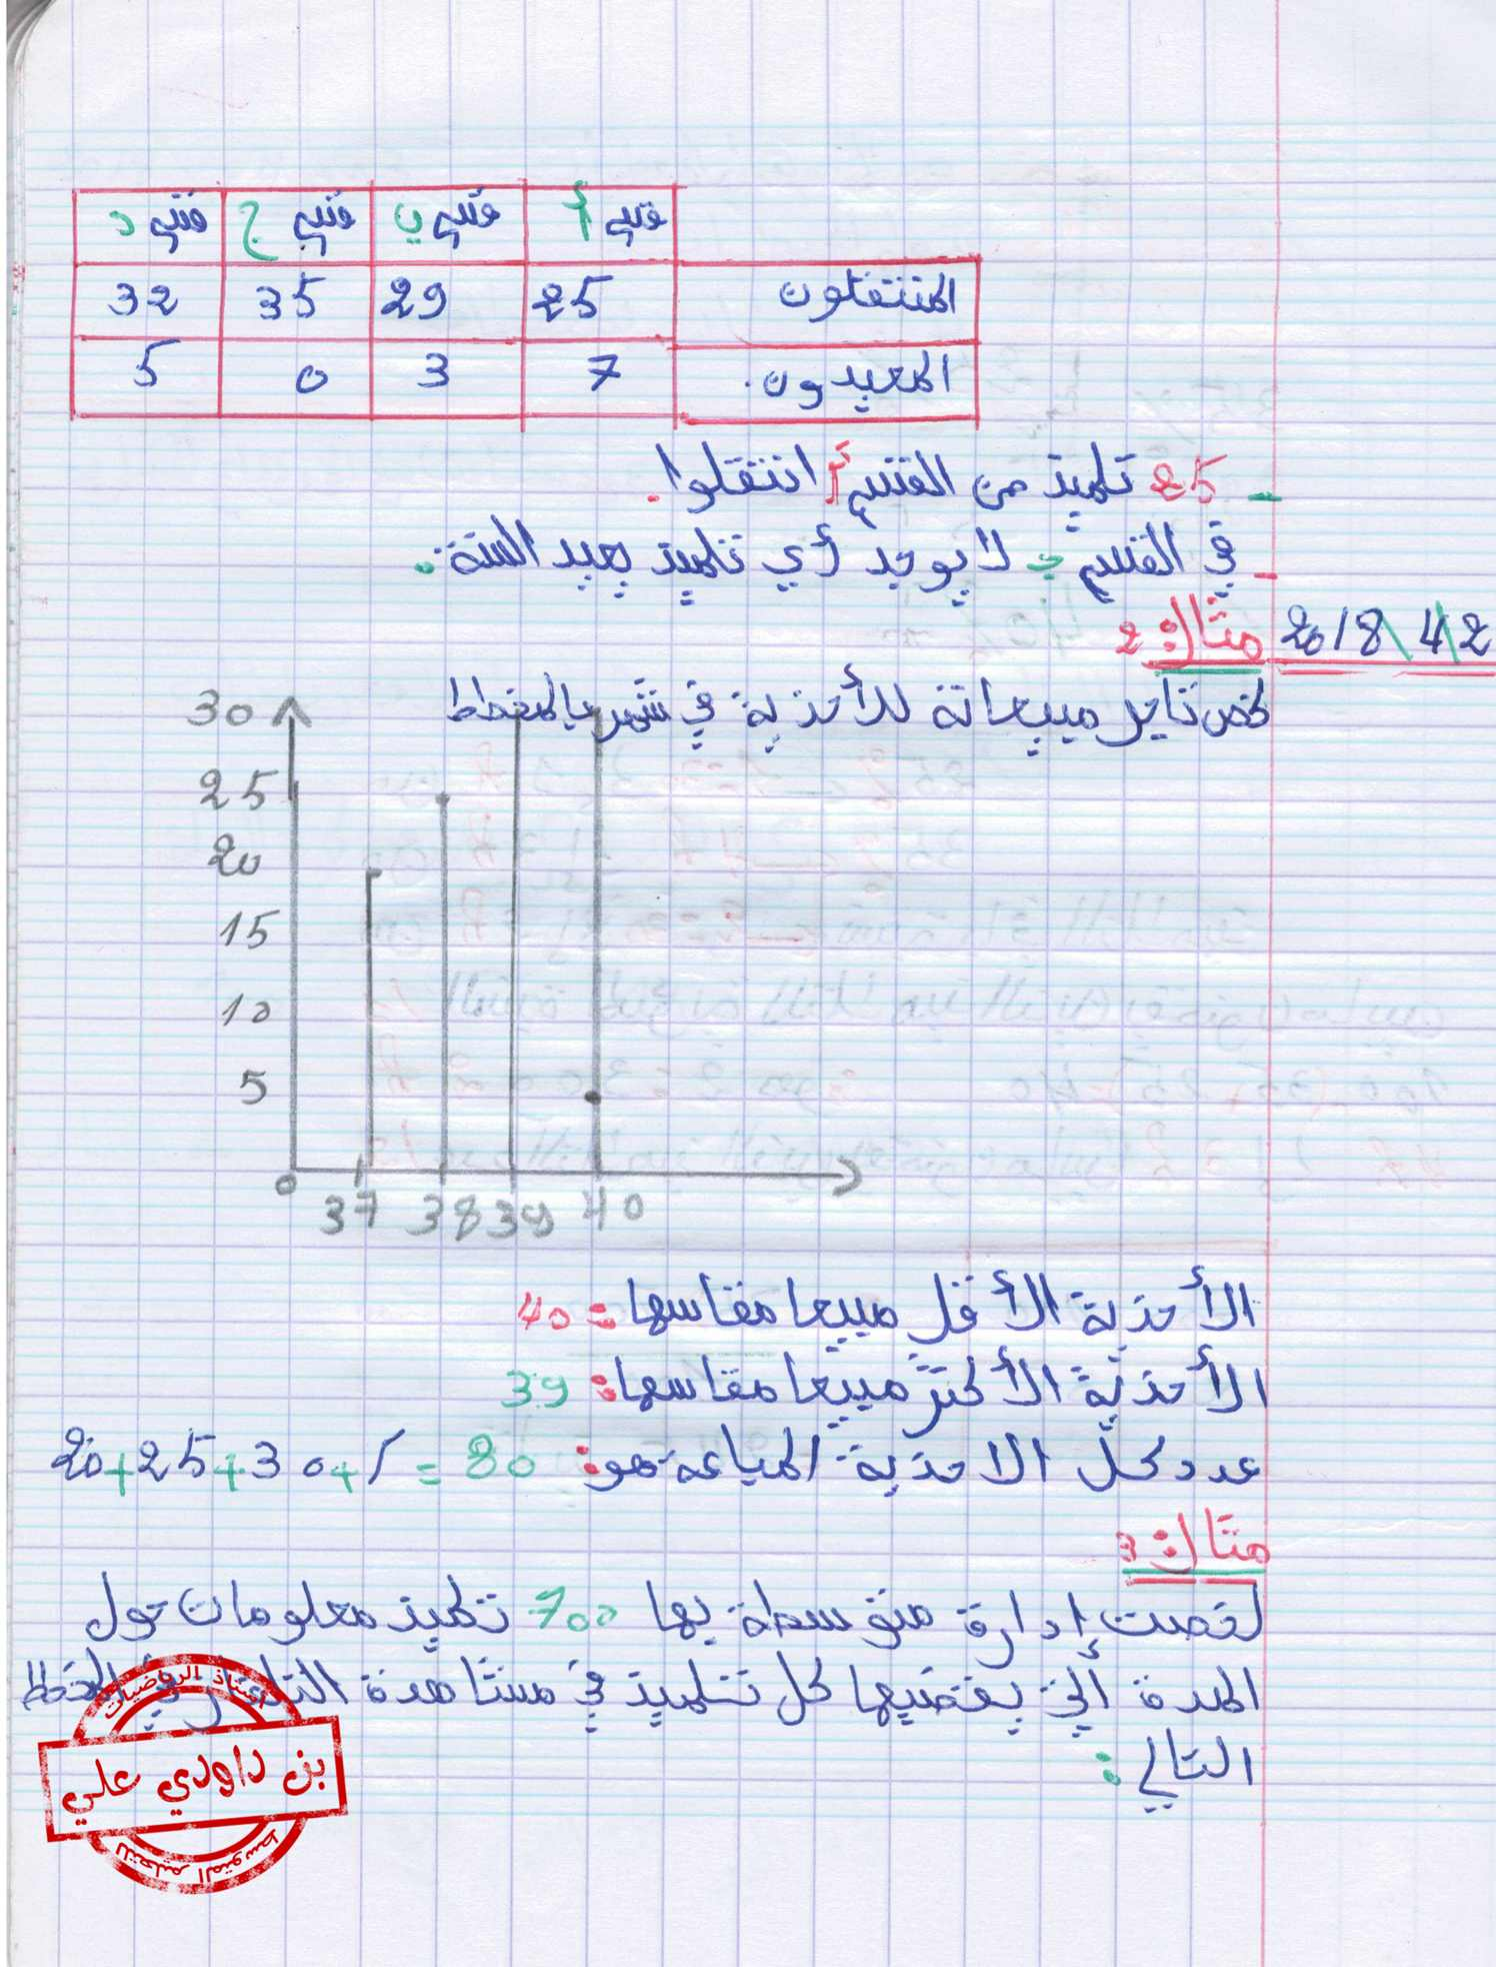 قسم أ قسم ب قسم ج قسم د
المنتقلون 25 29 35 32
المعيدون. 7 3 0 5
- 25 تلميذ من القسم أ انتقلوا.
- في القسم ج لا يوجد أي تلميذ يعيد السنة.
2018\4\2
مثال: 2
لخص تاجر مبيعاته للأحذية في شهر بالمخطط
30
25
20
15
10
5
0 37 38 39 40
الأحذية الأقل مبيعا مقاسها: 40
الأحذية الأكثر مبيعا مقاسها: 39
عدد كل الاحذية المباعة هو: 80 = 20+25+30+
مثال: 3
لخصت إدارة متوسطة بها 700 تلميذ معلومات حول
المدة التي يقضيها كل تلميذ في مشاهدة التلفاز في المخطط
التالي:
أستاذ الرياضيات
بن داودي علي
للتعليم المتوسط